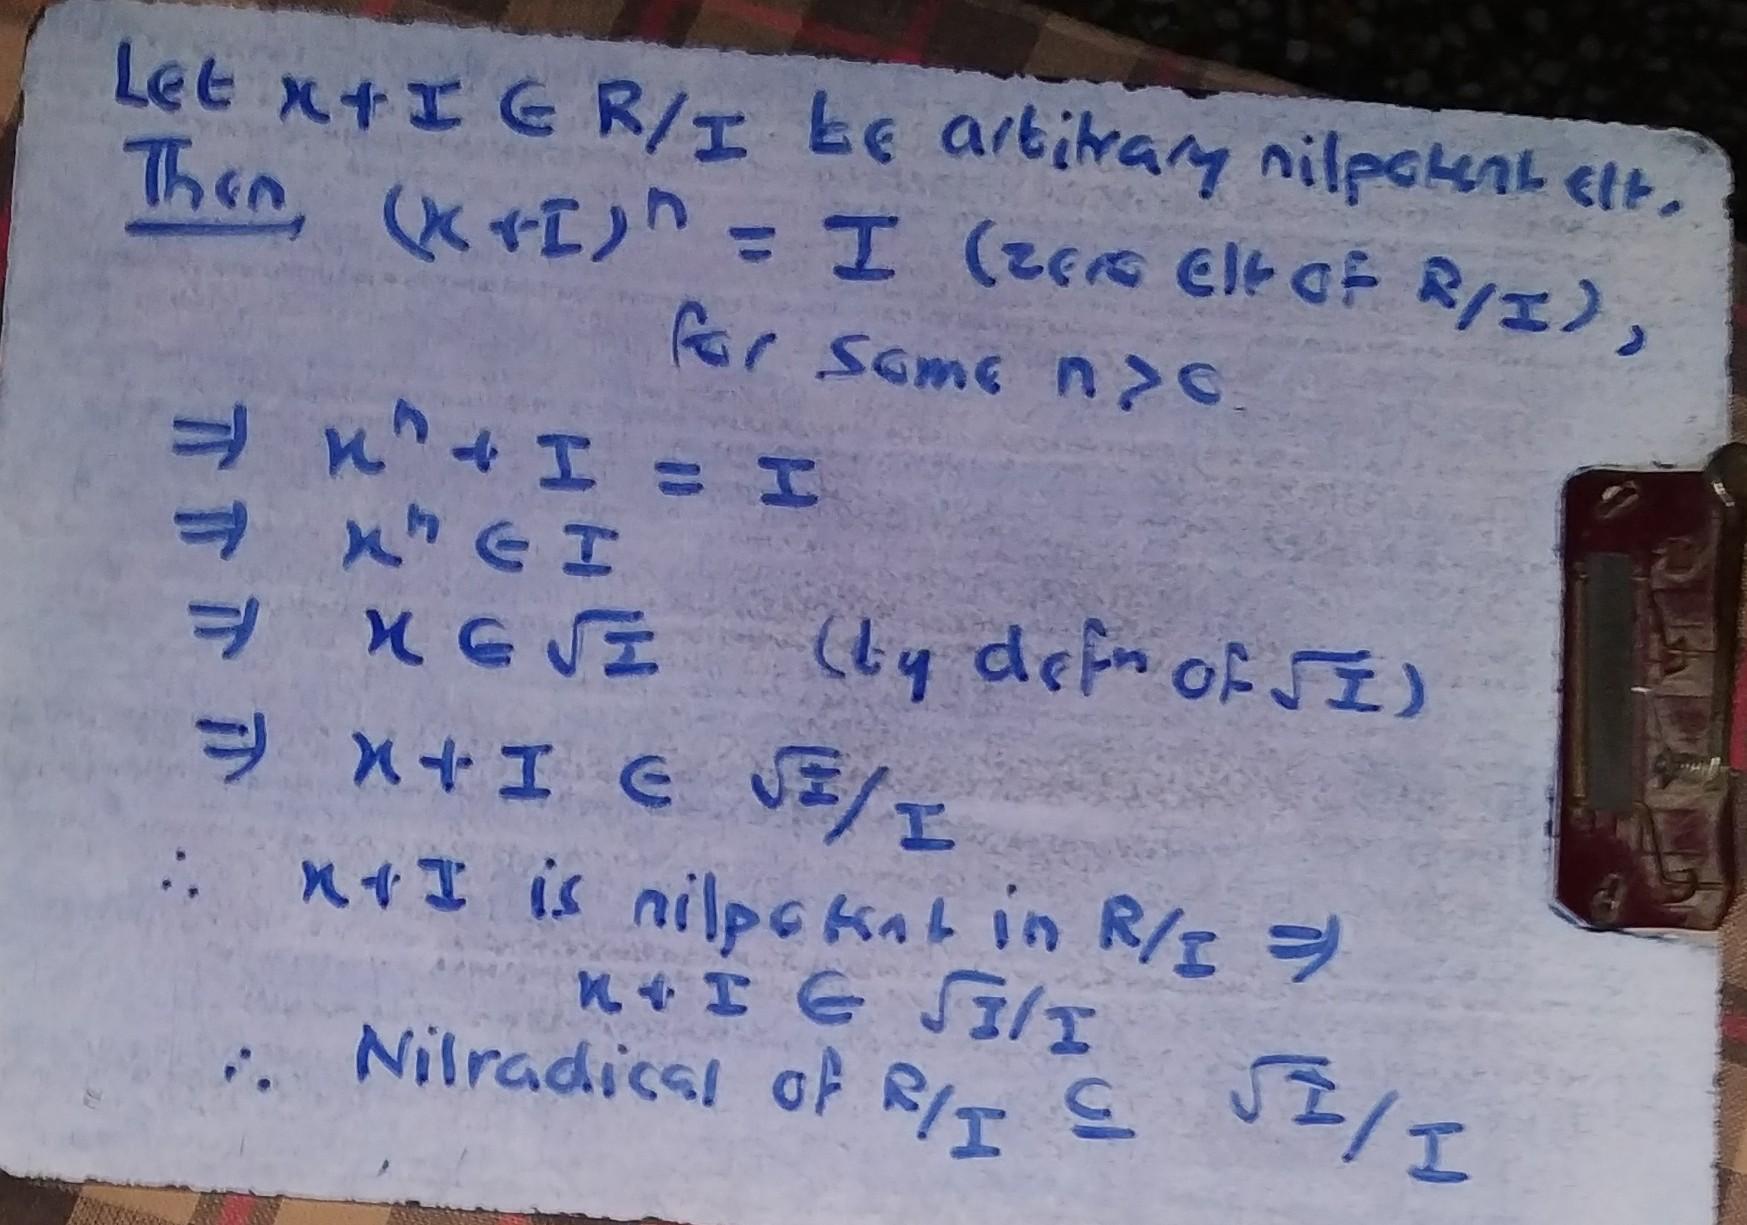 Let x + I ∈ R/I be arbitrary nilpotent elt.
Then, (x + I)ⁿ = I (zero elt of R/I),
for some n > 0
⇒ xⁿ + I = I
⇒ xⁿ ∈ I
⇒ x ∈ √I (by defn of √I)
⇒ x + I ∈ √I/I
∴ x + I is nilpotent in R/I ⇒
x + I ∈ √I/I
∴ Nilradical of R/I ⊆ √I/I